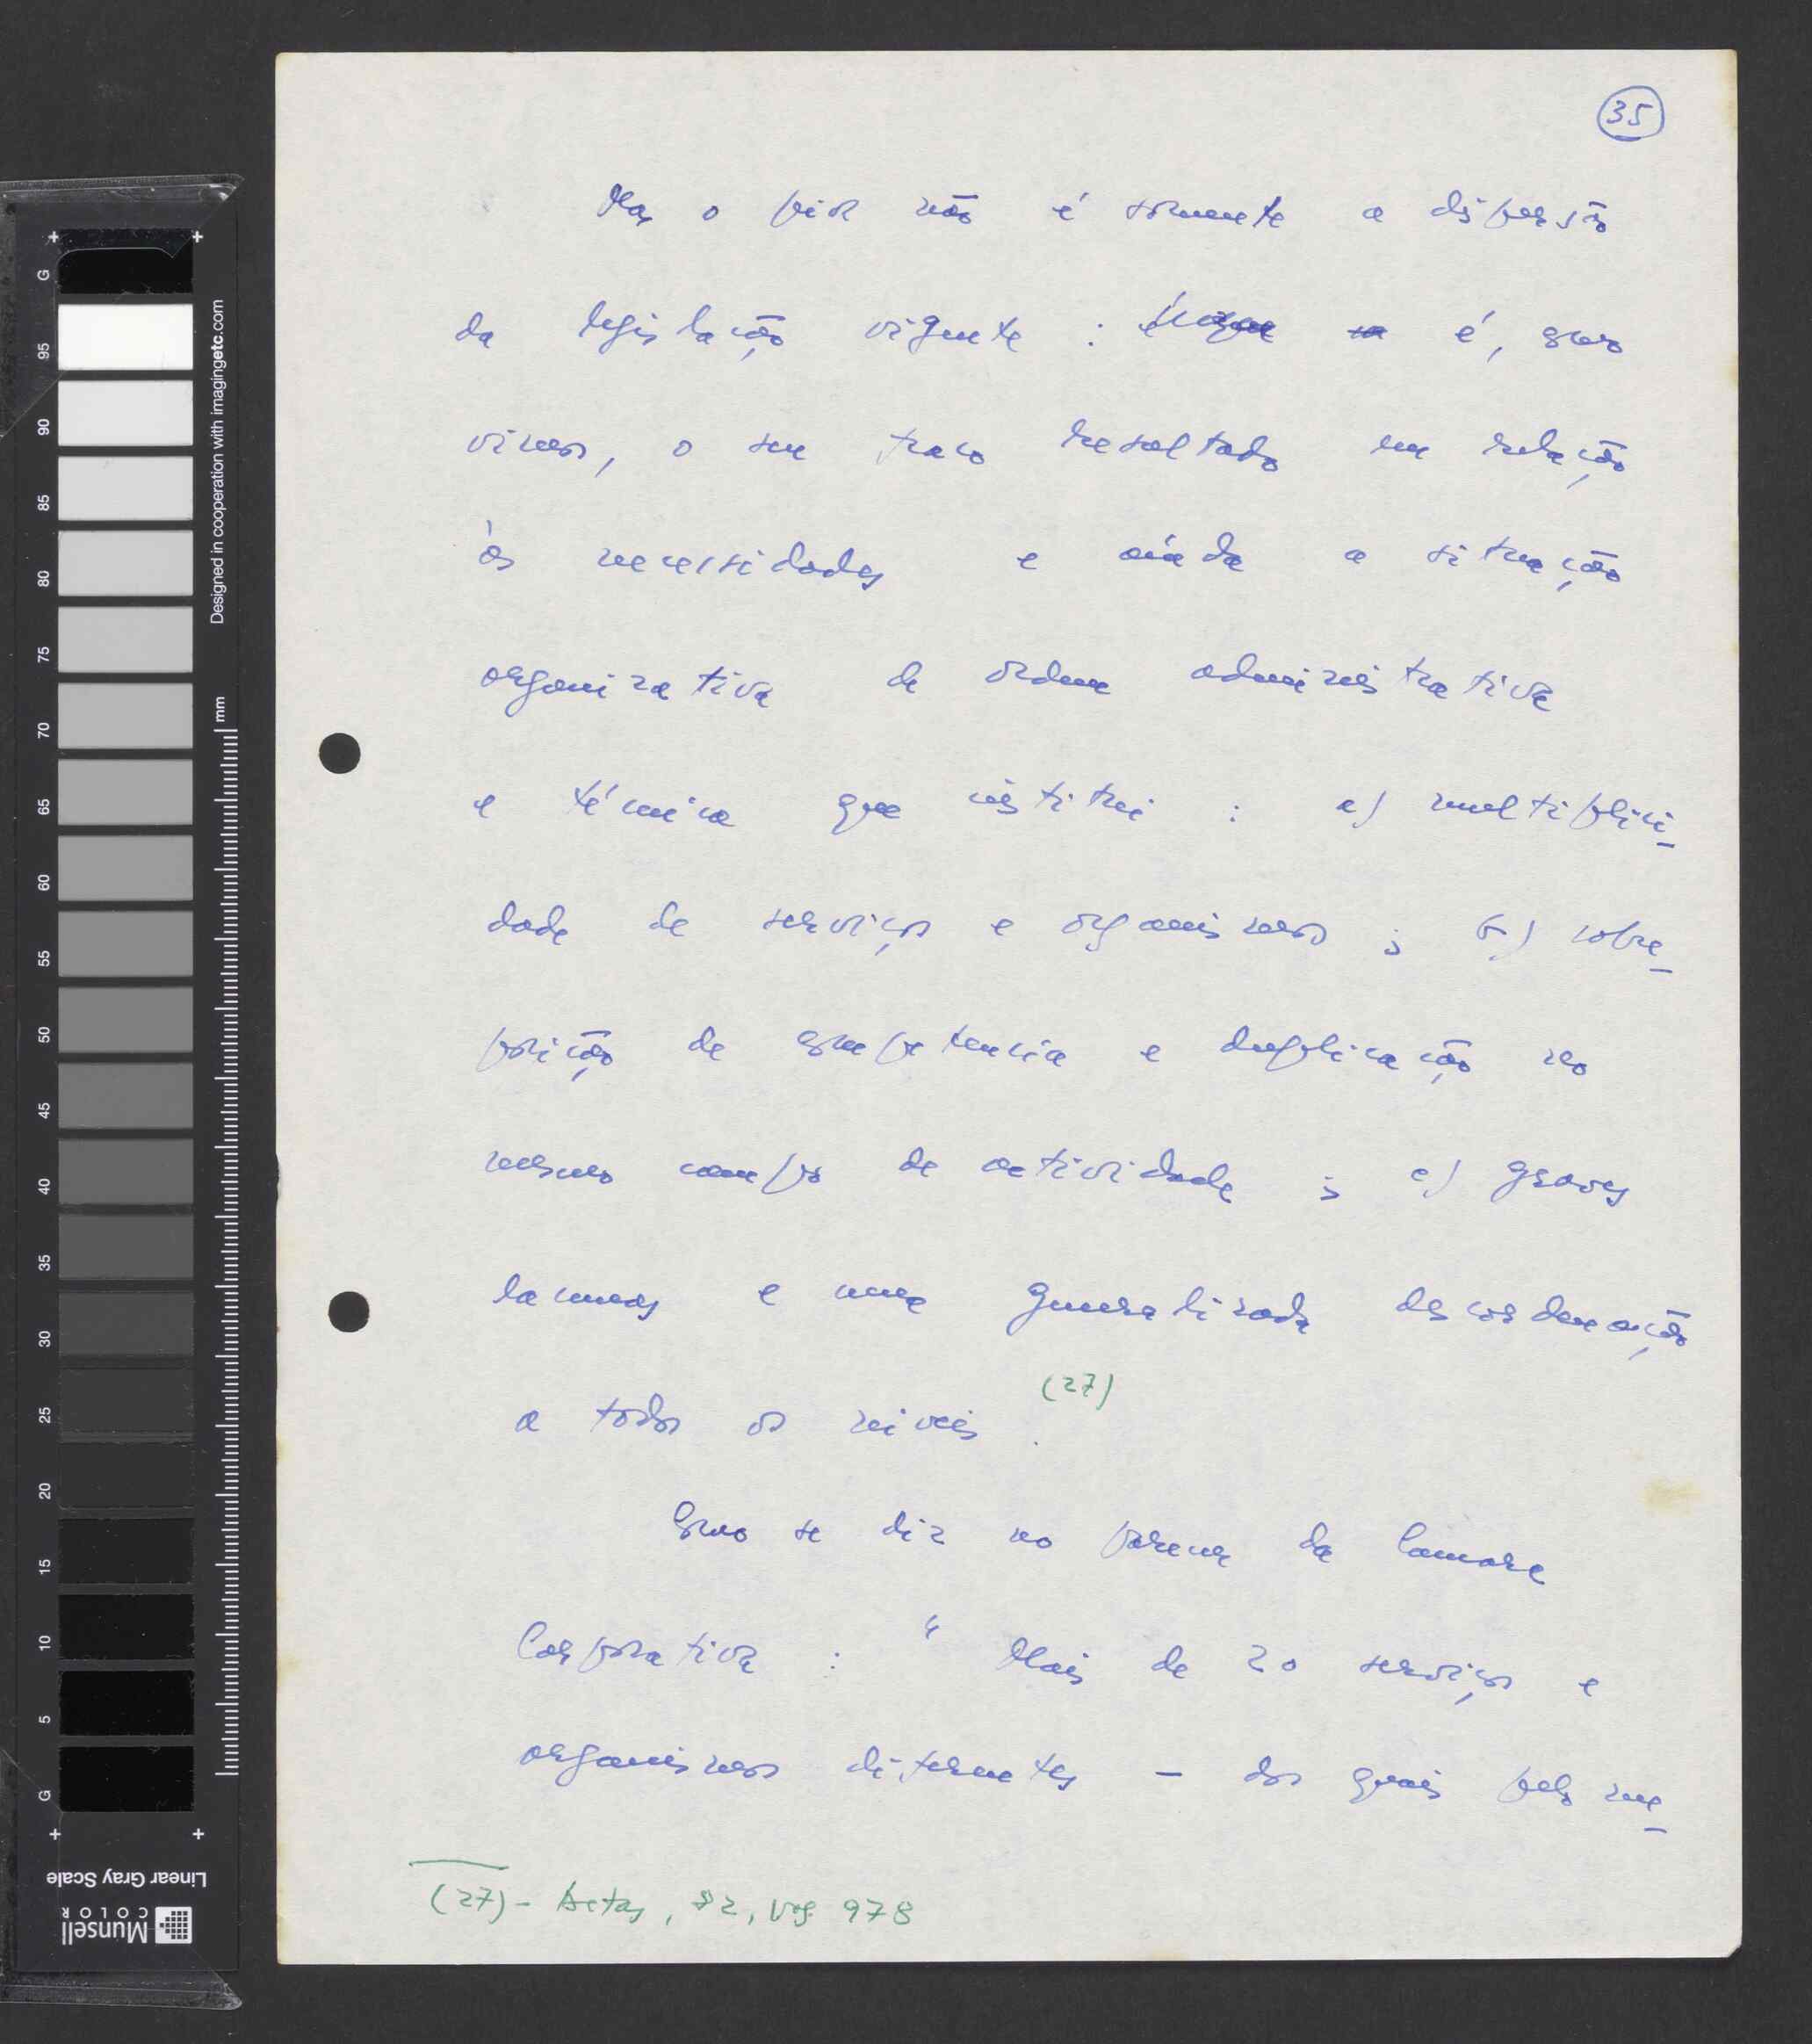 35
Mas o pior não é somente a dispersão
da legislação vigente : é, como
vimos, o seu fraco resultado em relação
às necessidades e ainda a situação
organizativa de ordem administrativa
e técnica que institui : a) multiplici-
dade de serviços e organismos ; b) sobre-
posição de competencia e duplicação no
mesmo campo de actividade ; c) graves
lacunas e uma generalizada descordenação
a todos os niveis . (27)
Como se diz no parecer da Camara
Corporativa : " Mais de 20 serviços e
organismos diferentes — dos quais pelo me-
(27) - Actas, 72, pag. 978
G
95
90
85
80
75
70
65
60
55
50
45
40
35
30
25
20
15
10
5
G
mm
Designed in cooperation with imagingetc.com
Linear Gray Scale
Munsell
COLOR